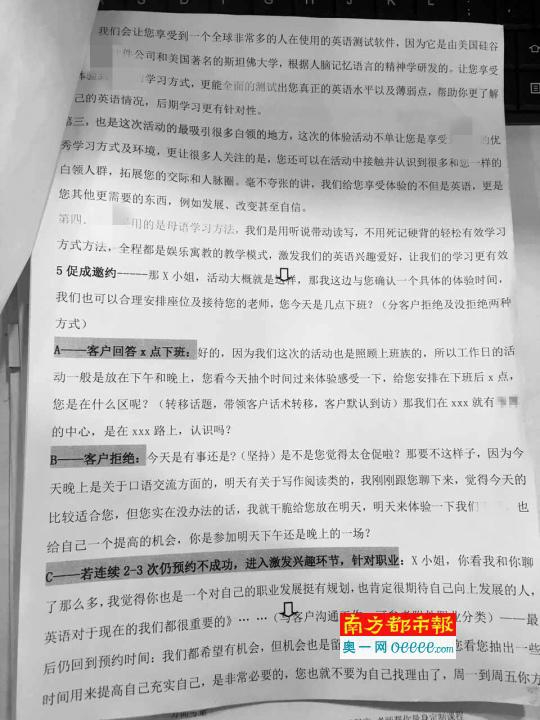 我们会让您享受到一个全球非常多的人在使用的英语测试软件，因为它是由美国硅谷
件公司和美国著名的斯坦佛大学，根据人脑记忆语言的精神学研发的。让您享受
学习方式，更能全面的测试出您真正的英语水平以及薄弱点，帮助你更了解
己的英语情况，后期学习更有针对性。
第三，也是这次活动的最吸引很多白领的地方，这次的体验活动不单让您是享受 的优
秀学习方式及环境，更让很多人关注的是，您还可以在活动中接触并认识到很多和您一样的
白领人群，拓展您的交际和人脉圈。毫不夸张的讲，我们给您享受体验的不但是英语，更是
您其他更需要的东西，例如发展、改变甚至自信。
第四、 用的是母语学习方法，我们是用听说带动读写，不用死记硬背的轻松有效学习
方式方法，全程都是娱乐寓教的教学模式，激发我们的英语兴趣爱好，让我们的学习更有效
5 促成邀约-----那 X 小姐，活动大概就是这样，那我这边与您确认一个具体的体验时间，
我们也可以合理安排座位及接待您的老师，您今天是几点下班？（分客户拒绝及没拒绝两种
方式）
A——客户回答 x 点下班：好的，因为我们这次的活动也是照顾上班族的，所以工作日的活
动一般是放在下午和晚上，您看今天抽个时间过来体验感受一下，给您安排在下班后 x 点，
您是在什么区呢？（转移话题，带领客户话术转移，客户默认到访）那我们在 xxx 就有
的中心，是在 xxx 路上，认识吗？
B——客户拒绝：今天是有事还是?（坚持）是不是您觉得太仓促啦？那要不这样子，因为今
天晚上是关于口语交流方面的，明天有关于写作阅读类的，我刚刚跟您聊下来，觉得今天的
比较适合您，但您实在没办法的话，我就干脆给您放在明天，明天来体验一下我们 也
给自己一个提高的机会，你是参加明天下午还是晚上的一场？
C——若连续 2-3 次仍预约不成功，进入激发兴趣环节，针对职业：X 小姐，你看我和你聊
了那么多，我觉得你也是一个对自己的职业发展挺有规划，也肯定很期待自己向上发展的人，
英语对于现在的我们都很重要的》… …（与客户沟通 职业分类）——最
后仍回到预约时间：我们都希望有机会，但机会也是留 您看您抽出一些
时间用来提高自己充实自己，是非常必要的，您也就不要为自己找理由了，周一到周五你方
南方都市報
奥一网 oeeee.com